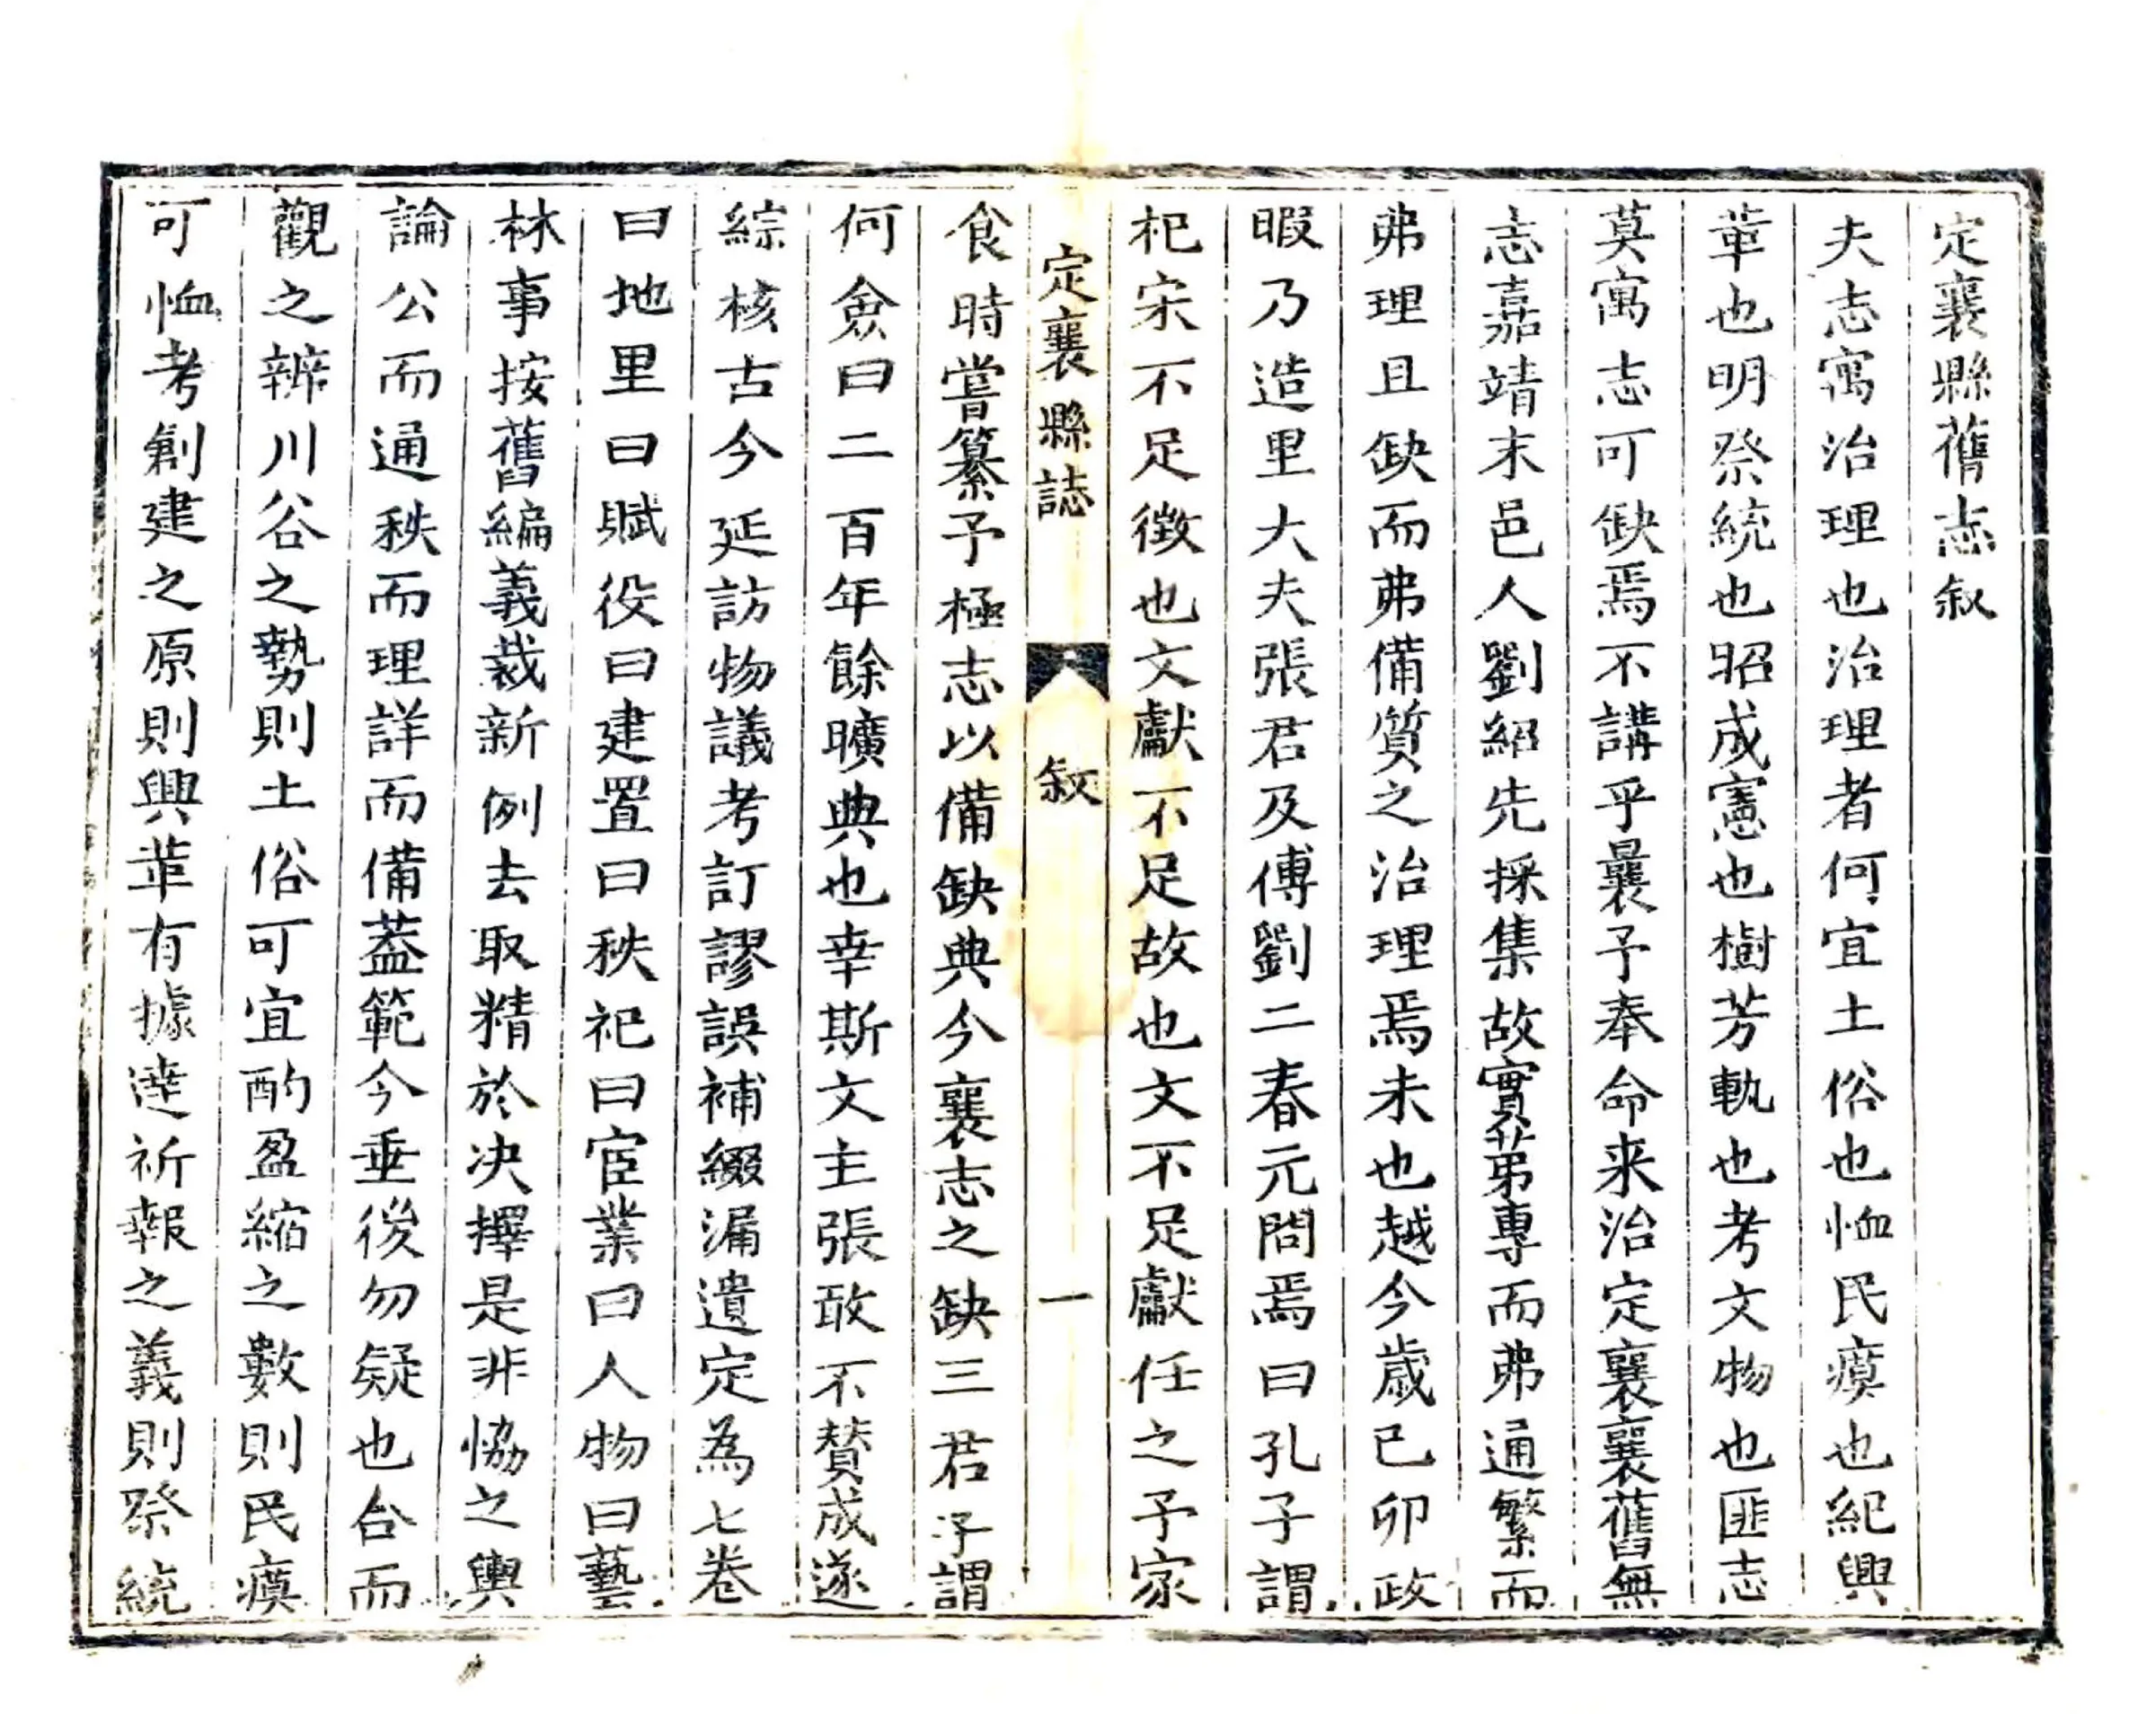 定襄縣舊志叙
夫志寓治理也治理者何宜土俗也恤民瘼也紀興
革也明祭統也昭成憲也樹芳軌也考文物也匪志
莫寓志可缺焉不講乎曩予奉命来治定襄襄舊無
志嘉靖末邑人劉紹先採集故實苐專而弗通繁而
弗理且缺而弗備質之治理焉未也越今歲已卯政
暇乃造里大夫張君及傅劉二春元問焉曰孔子謂
杞宋不足徴也文獻不足故也文不足獻任之予家
定襄縣誌
叙
一
食時嘗纂予極志以備缺典今襄志之缺三君子謂
何僉曰二百年餘曠典也幸斯文主張敢不賛成遂
綜核古今延訪物議考訂謬誤補綴漏遺定為七卷
曰地里曰賦役曰建置曰秩祀曰宦業曰人物曰藝
林事按舊編義裁新例去取精於决擇是非恊之輿
論公而通秩而理詳而備葢範今垂後勿疑也合而
觀之辨川谷之勢則土俗可宜酌盈縮之數則民瘼
可恤考創建之原則興革有據達祈報之義則祭統